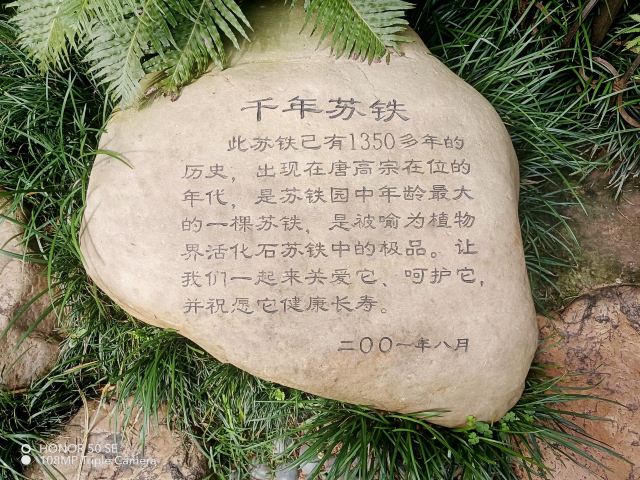 千年苏铁
此苏铁已有1350多年的
历史，出现在唐高宗在位的
年代，是苏铁园中年龄最大
的一棵苏铁，是被喻为植物
界活化石苏铁中的极品。让
我们一起来关爱它、呵护它，
并祝愿它健康长寿。
二〇〇一年八月
HONOR 50 SE
108MP Triple Camera